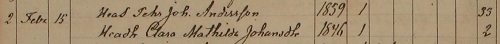 2 Febr 15 Head Pehr Joh. Andersson 1839 1 33
Clara Mathilda Johansdtr 1846 1 2